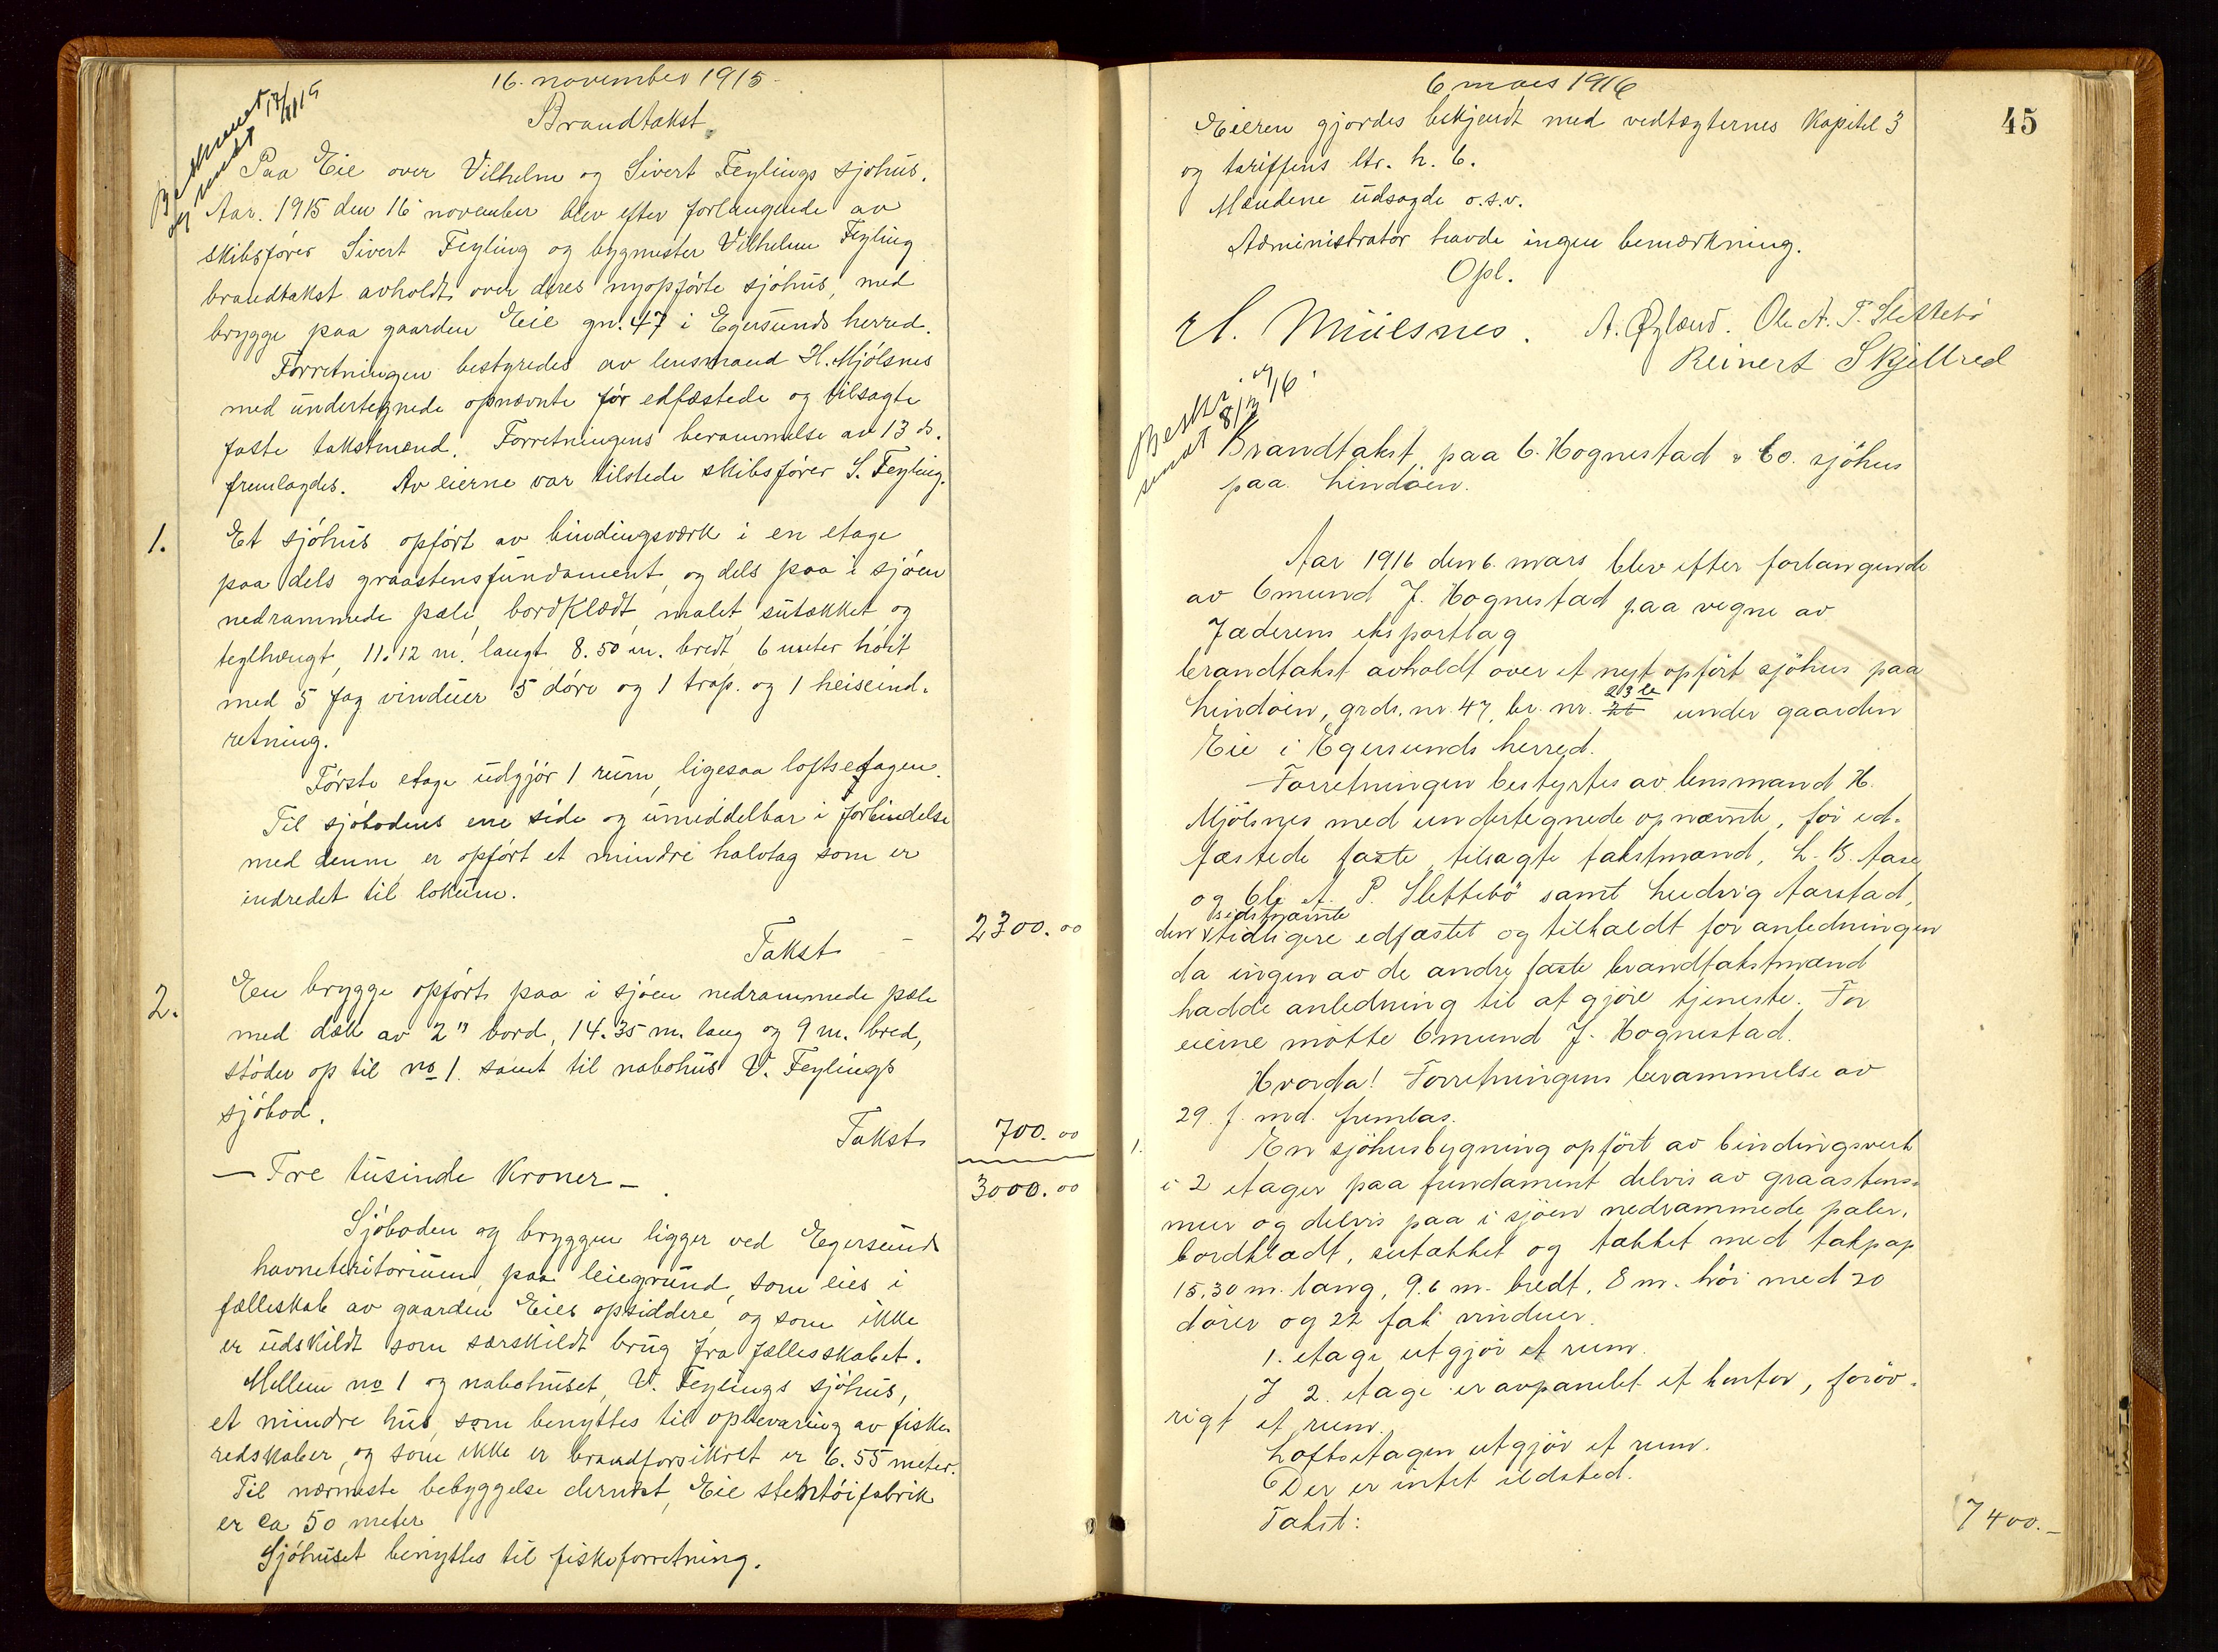 16. november 1915.
Brandtakst.
Beskrevet
og sendt 17/11 15
Paa Eie over Vilhelm og Sivert Feylings sjøhus.
Aar. 1915 den 16 november blev efter forlangende av
skibsfører Sivert Feyling og bygmester Vilhelm Feyling
brandtakst avholdt over deres nyopførte sjøhus, med
brygge paa gaarden Eie gn. 47 i Egersunds herred.
Forretningen bestyredes av lensmand H. Mjølsnes
med undertegnede opnævnte før edfæstede og tilsagte
faste takstmænd. Forretningens berammelse av 13 ds.
fremlagdes. Av eierne var tilstede skibsfører S. Feyling.
1.
Et sjøhus opført av bindingsværk i en etage
paa dels graastensfundament, og dels paa i sjøen
nedrammede pæle, bordklædt, malet, sutækket og
teglhængt, 11.12 m. langt, 8.50 m. bredt, 6 meter høit
med 5 fag vinduer 5 døre og 1 trap. og 1 heiseind-
retning.
Første etage udgjør 1 rum, ligesaa loftsetagen.
Til sjøbodens ene side og umiddelbar i forbindelse
med denne er opført et mindre halvtag som er
indredet til lokum.
Takst - 2300.00
2.
En brygge opført paa i sjøen nedrammede pæle
med dæk av 2" bord, 14.35 m. lang og 9 m. bred,
støder op til no 1. samt til nabohus V. Feylings
sjøbod.
Takst 700.00
— Tre tusinde Kroner — 3000.00
Sjøboden og bryggen ligger ved Egersunds
havneteritorium, paa leiegrund, som eies i
fælleskab av gaarden Eies opsiddere, og som ikke
er udskildt som særskildt brug fra fællesskabet.
Mellem no 1 og nabohuset, V. Feylings sjøhus,
et mindre hus, som benyttes til opbevaring av fiske-
redskaber, og som ikke er brandforsikret er 6.55 meter.
Til nærmeste bebyggelse dernæst, Eie stentøifabrik
er ca 50 meter
Sjøhuset benyttes til fiskeforretning.
6 mars 1916
45
Eieren gjordes bekjendt med vedtægternes Kapitel 3
og tariffens ltr. h. 6.
Mændene udsagde o.s.v.
Administrator havde ingen bemærkning.
Opl.
H. Miølsnes. A. Øgland. Ole A. P. Slettebø
Reinert Skjelbred
Beskr. og
sendt 8/3 16.
Brandtakst paa O. Hognestad & Co. sjøhus
paa Lindøen.
Aar 1916 den 6. mars blev efter forlangende
av Omund J. Hognestad paa vegne av
Jæderens eksportlag
brandtakst avholdt over et nyt opført sjøhus paa
Lindøen, grds. nr. 47, br. nr. 23 under gaarden
Eie i Egersunds herred.
Forretningen bestyrtes av lensmand H.
Mjölsnes med undertegnede opnævnte, før ed-
fæstede faste, tilsagte takstmænd, L. B. Aase
og Ole A. P. Slettebö samt Ludvig Aarstad,
den sidstnævnte tidligere edfæstet og tilkaldt for anledningen
da ingen av de andre faste brandtakstmænd
hadde anledning til at gjøre tjeneste. For
eierne møtte Omund J. Hognestad.
Hvorda! Forretningens berammelse av
29. f. md. fremlas.
1.
En sjøhusbygning opført av bindingsverk
i 2 etager paa fundament delvis av graastens-
mur og delvis paa i sjøen nedrammede pæler,
bordklædt, sutækket og tækket med takpap
15.30 m. lang, 9.6 m. bredt, 8 m. høi med 20
dører og 22 fak vinduer.
1. etage utgjør et rum.
I 2. etage er avpanelet et kontor, forøv-
rigt et rum.
Loftsetagen utgjør et rum.
Der er intet ildsted.
Takst: 7400.—